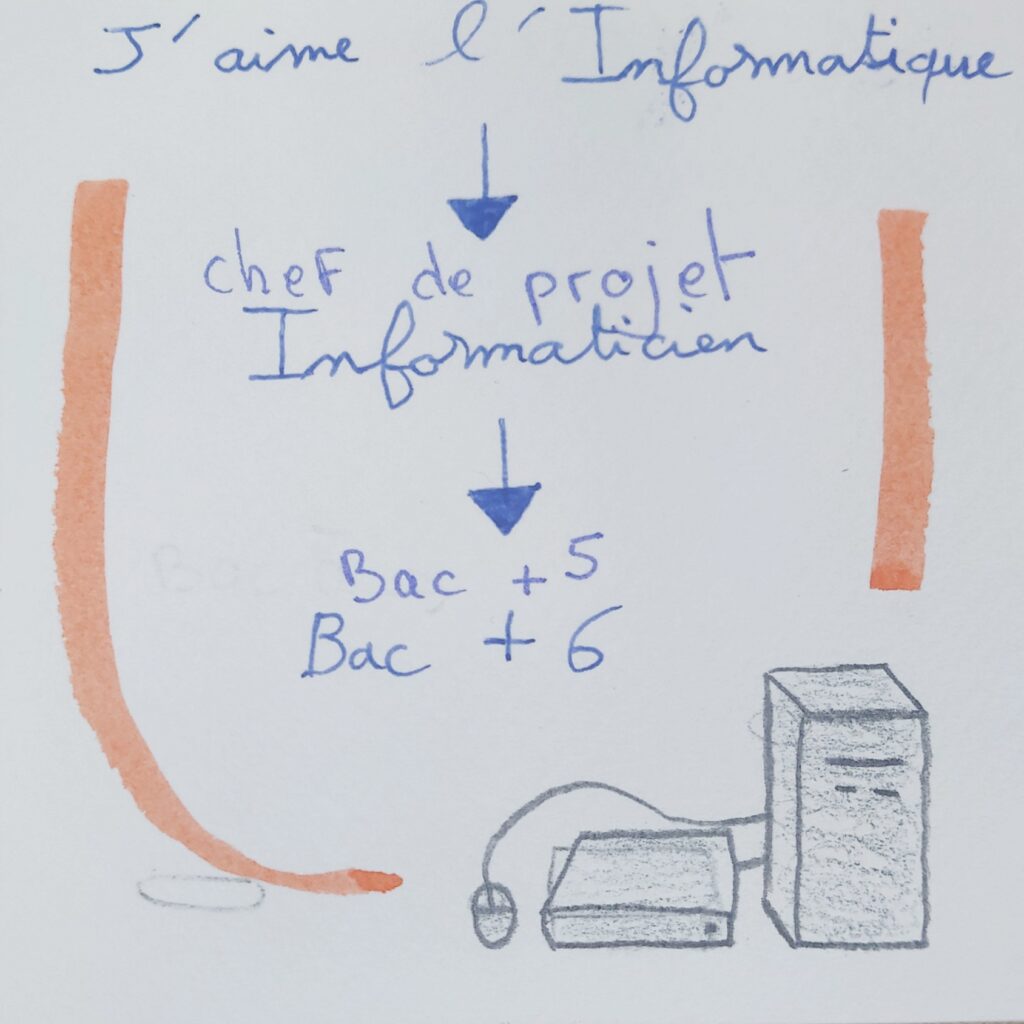 J'aime l'Informatique
chef de projet
Informaticien
Bac + 5
Bac + 6